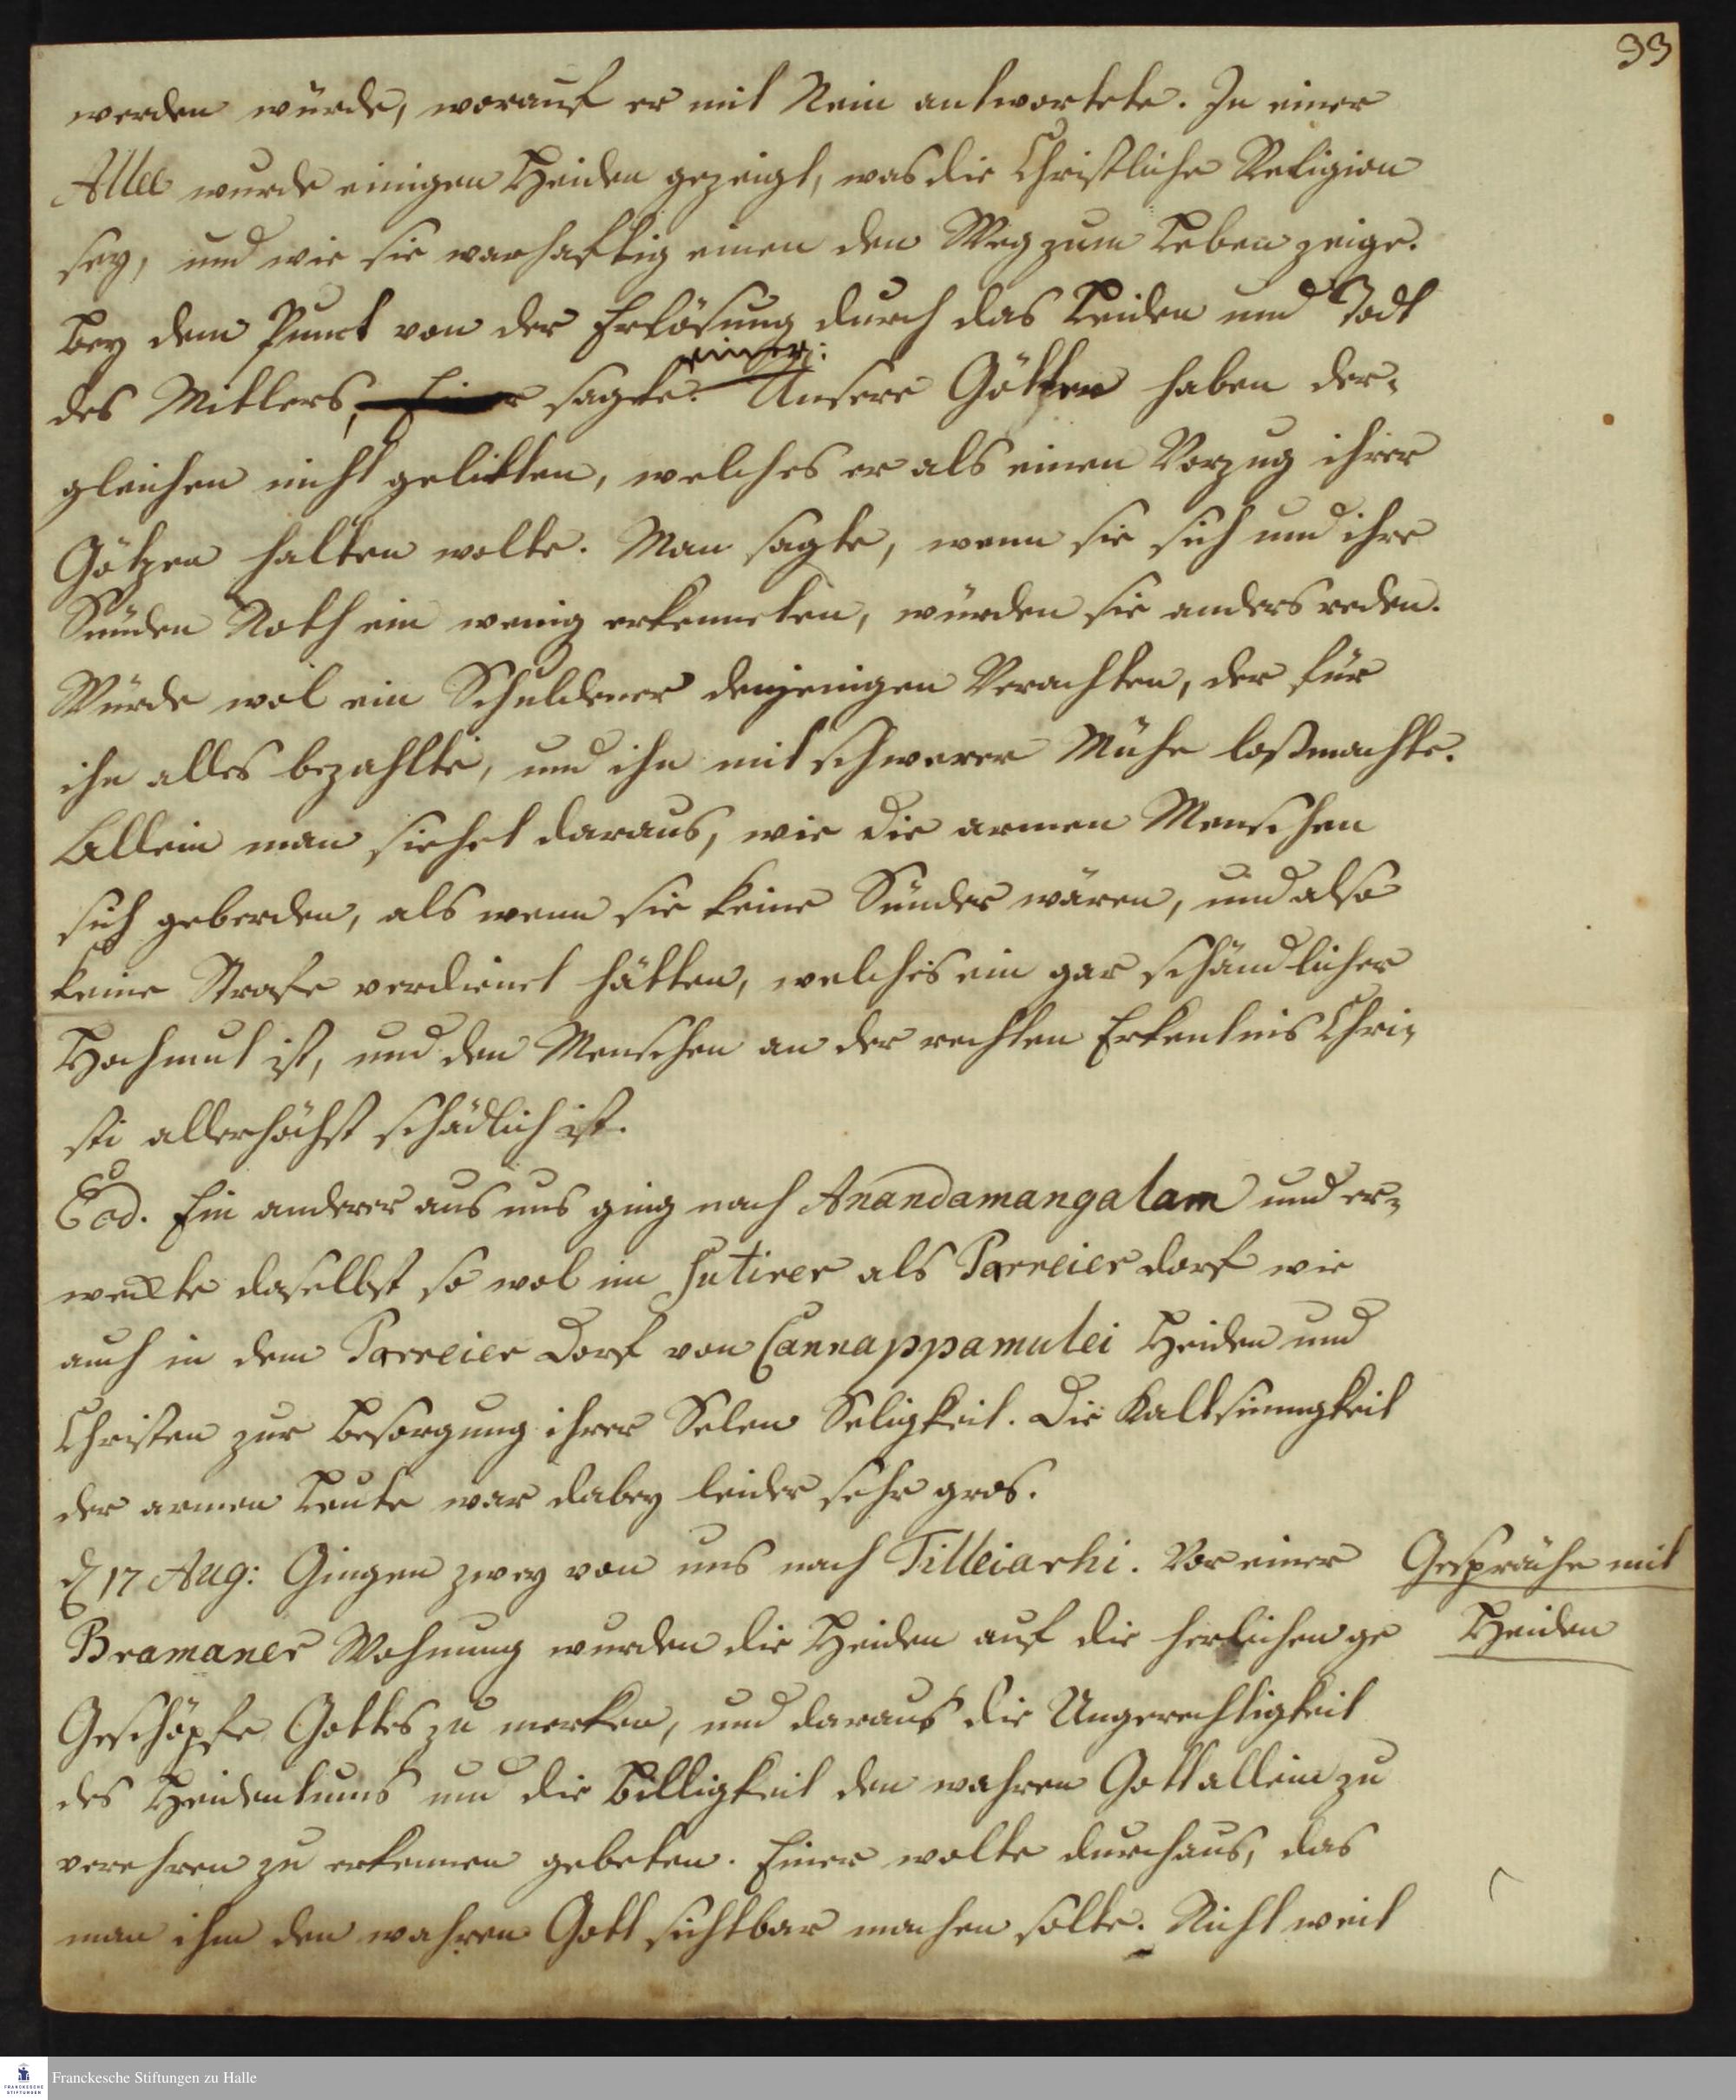 33
werden würde, worauf er mit Nein antwortete. In einer
Allee wurde einigen Heiden gezeigt, was die Christliche Religion
sey, und wie sie warhaftig einen den Weg zum Leben zeige.
Bey dem Punct von der Erlösung durch das Leiden und Todt
des Mitlers, Einer sagte einer: Unsere Götter haben der-
gleichen nicht gelitten, welches er als einen Vorzug ihrer
Götzen halten wolte. Man sagte, wenn sie sich und ihre
Sünden Noth ein wenig erkenneten, würden sie anders reden.
Würde wol ein Schuldener denjenigen Verachten, der für
ihn alles bezahlte, und ihn mit schwerer Mühe loßmachte.
Allein man siehet daraus, wie die armen Menschen
sich geberden, als wenn sie keine Sünder wären, und also
keine Strafe verdienet hätten, welches ein gar schändlicher
Hochmut ist, und den Menschen an der rechten Erkentnis Chri-
sti allerhöchst schädlich ist.
Eod. Ein anderer aus uns ging nach Anandamangalam und er-
weckte daselbst so wol im Sutirer als Parreier dorf wie
auch in dem Parreier Dorf von Cannappamulei Heiden und
Christen zur Besorgung ihrer Selen Seligkeit. Die Kaltsinnigkeit
der armen Leute war dabey leider sehr gros.
d 17 Aug: Gingen zwey von uns nach Tilleiarhi. Vor einer
Gespräche mit
Heiden
Bramaner Wohnung wurden die Heiden auf die herlichen ge
Geschöpfe Gottes zu merken, und daraus die Ungerechtigkeit
des Heidentums und die Billigkeit den wahren Gott allein zu
verehren zu erkennen gebeten. Einer wolte durchaus, das
man ihm den wahren Gott sichtbar machen solte. Nicht weit
Franckesche Stiftungen zu Halle
FRANCKESCHE
STIFTUNGEN